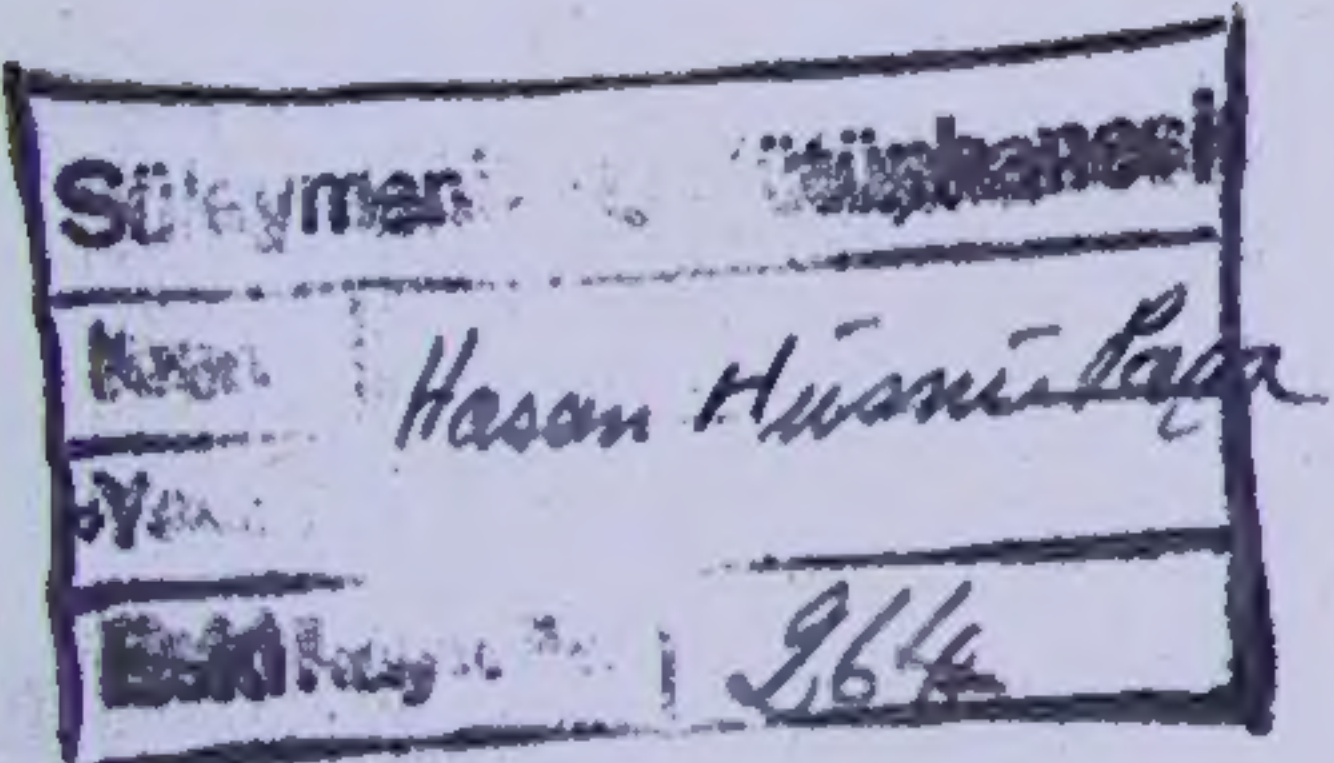 Süleymani Kütüphanesi
Kısmı Hasan Hüsnü Paşa
Yeni
Eski Kayıt No. 264